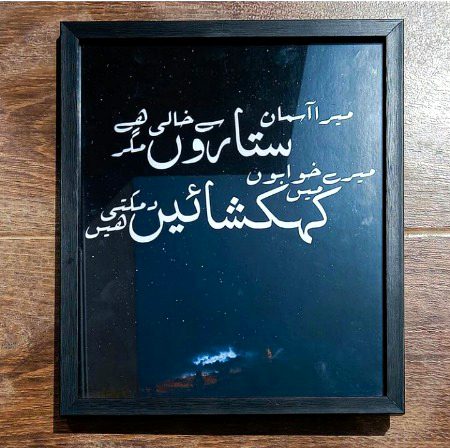 میرا آسمان ستاروں سے خالی ھے مگر
میرے خوابوں میں کہکشائیں دمکتی ھیں